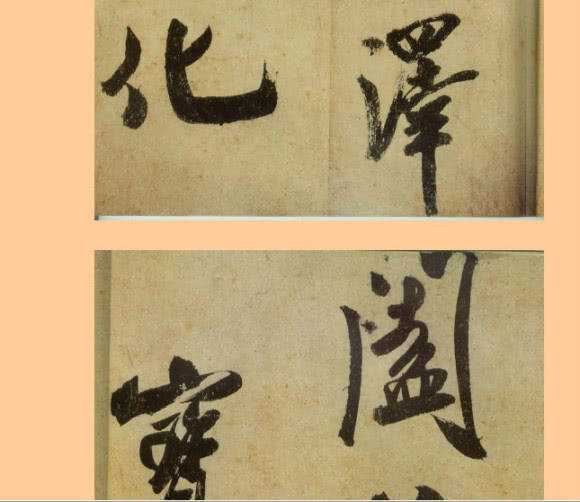 澤
化
闔